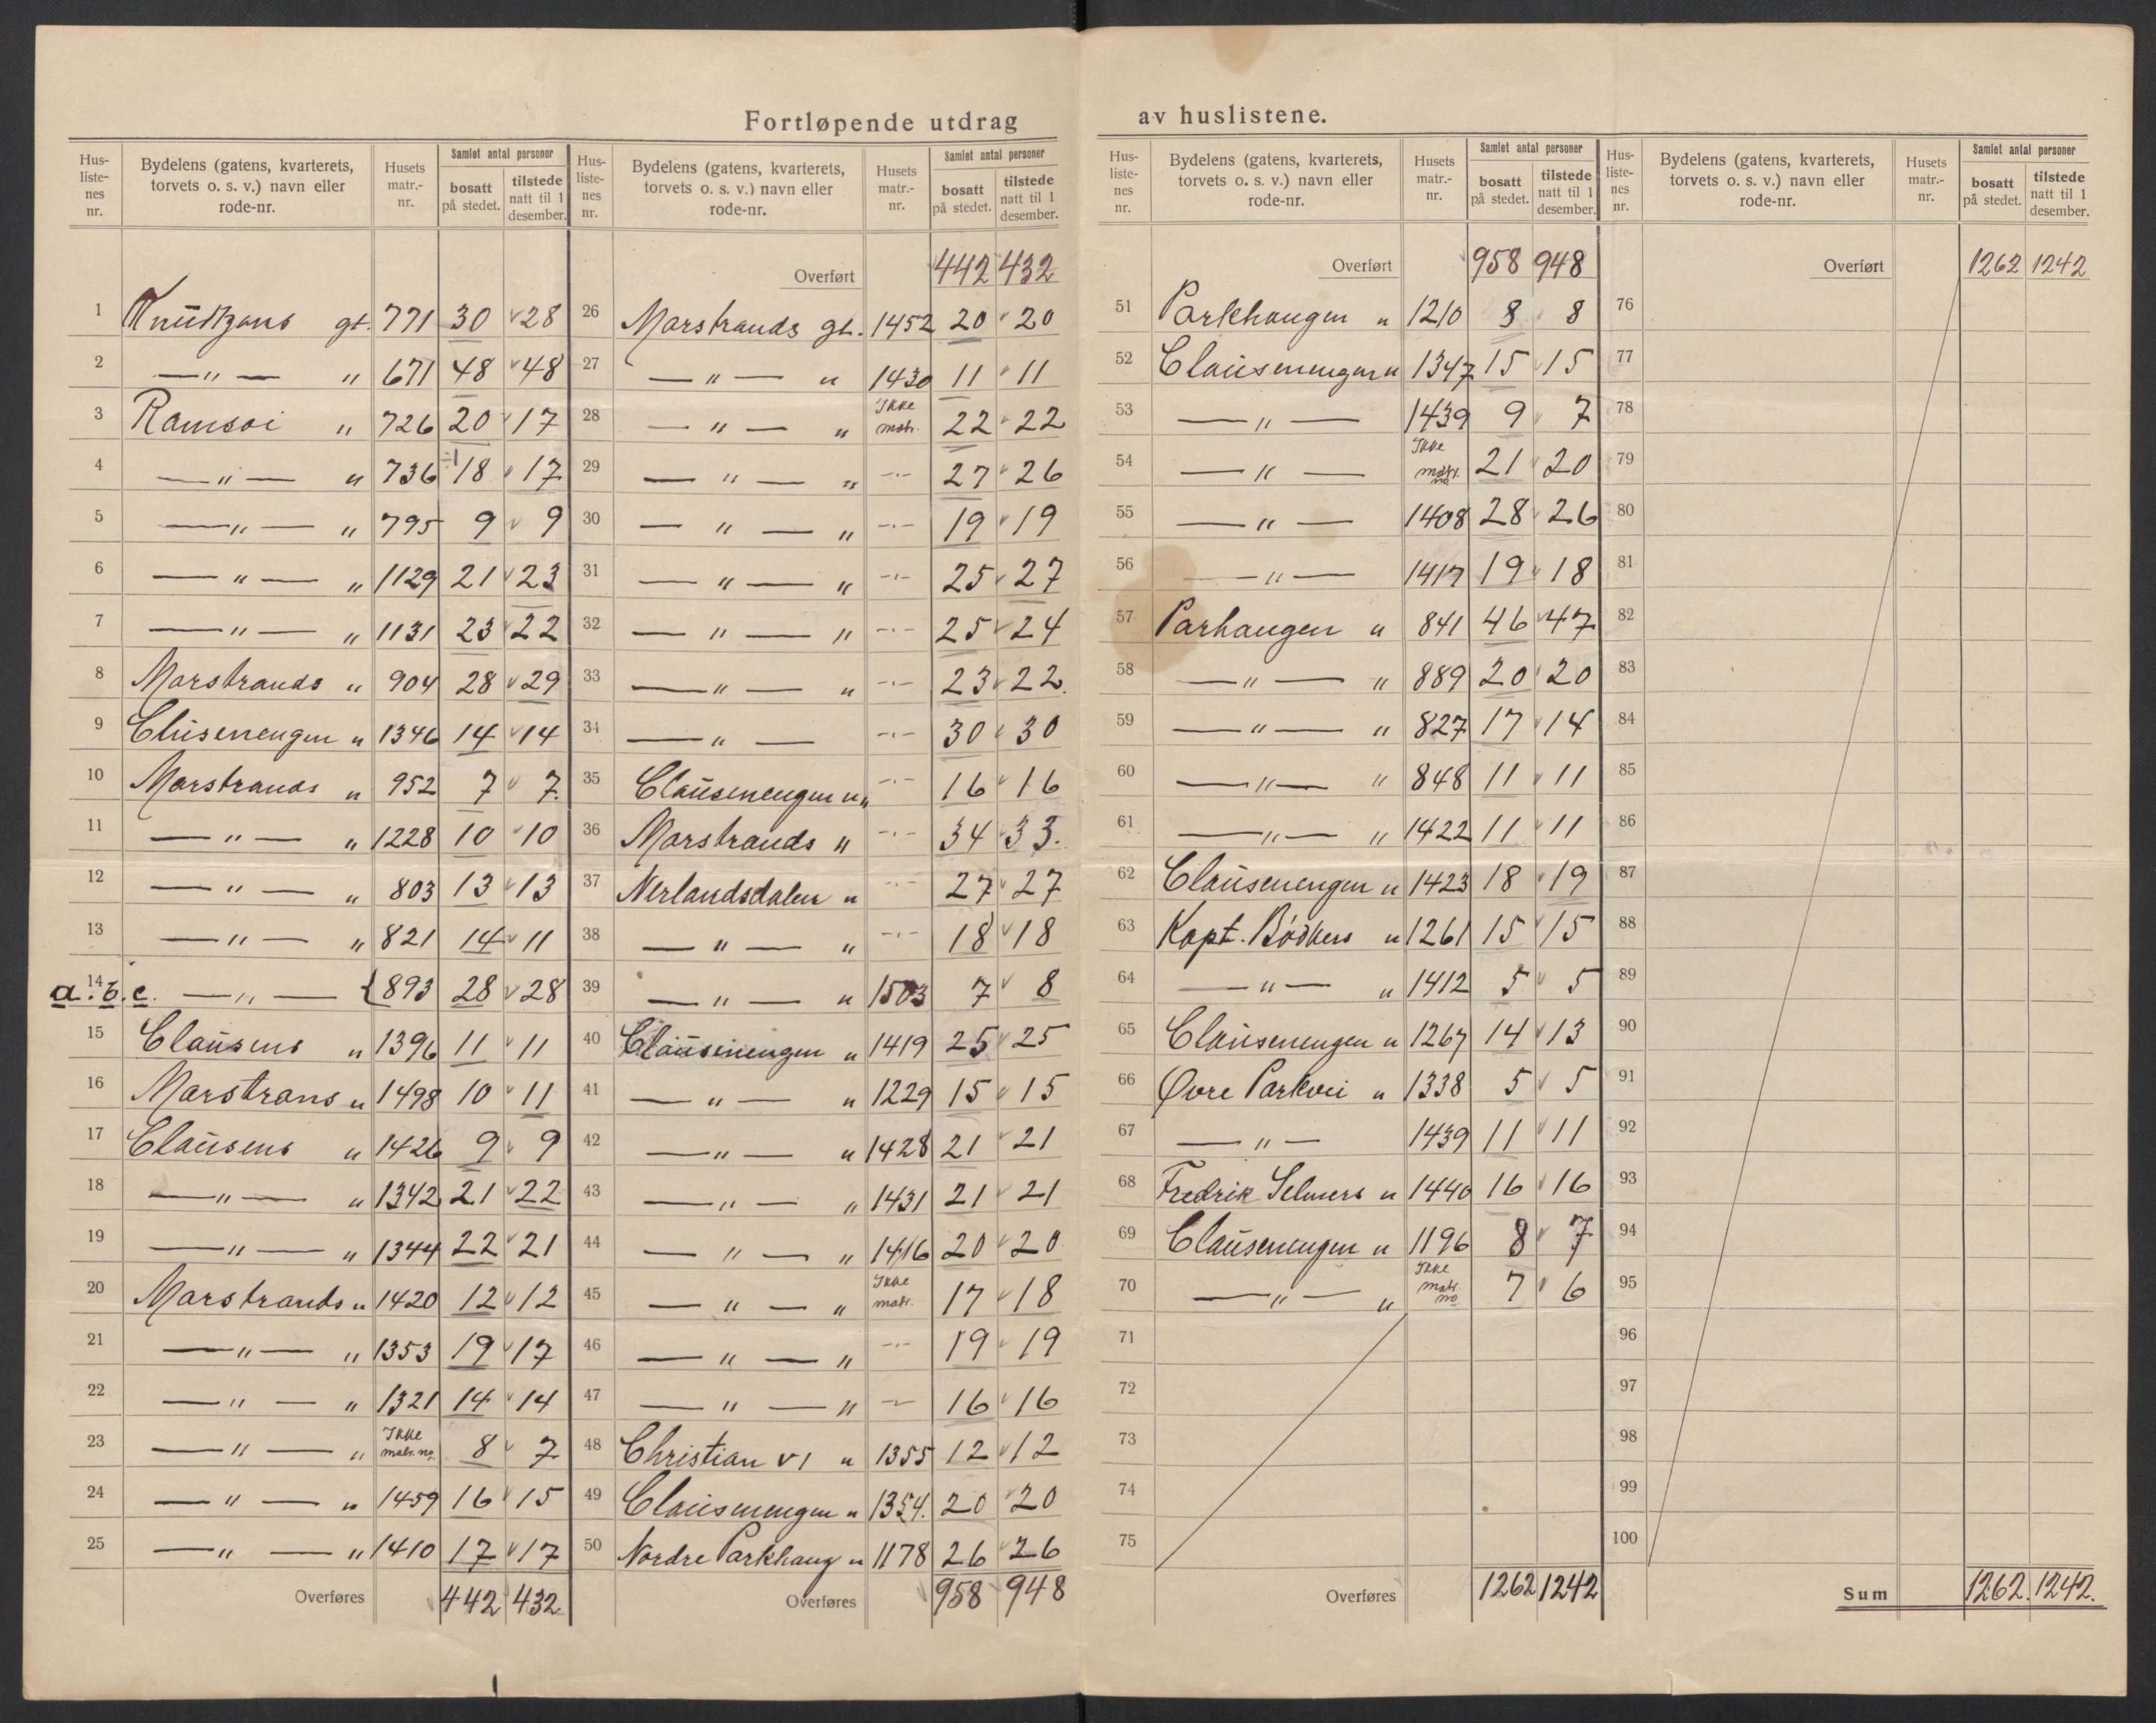 Fortløpende utdrag av huslistene.
Hus-listenes nr. | Bydelens (gatens, kvarterets, torvets o. s. v.) navn eller rode-nr. | Husets matr.-nr. | Samlet antal personer bosatt på stedet. | tilstede natt til 1 desember.
1 Knudtzons gt. 771 30 28
2 —„— „ 671 48 48
3 Ramsøi „ 726 20 17
4 —„— „ 736 ÷1 18 17
5 —„— „ 795 9 9
6 —„— „ 1129 21 23
7 —„— „ 1131 23 22
8 Marstrands „ 904 28 29
9 Clusenengen „ 1346 14 14
10 Marstrands „ 952 7 7
11 —„— „ 1228 10 10
12 —„— „ 803 13 13
13 —„— „ 821 14 11
14 a. b. c. —„— { 893 28 28
15 Clausens „ 1396 11 11
16 Marstrans „ 1498 10 11
17 Clausens „ 1426 9 9
18 —„— „ 1342 21 22
19 —„— „ 1344 22 21
20 Marstrands „ 1420 12 12
21 —„— „ 1353 19 17
22 —„— „ 1321 14 14
23 —„— „ Ikke matr. no. 8 7
24 —„— „ 1459 16 15
25 —„— „ 1410 17 17
Overføres 442 432
Hus-listenes nr. | Bydelens (gatens, kvarterets, torvets o. s. v.) navn eller rode-nr. | Husets matr.-nr. | Samlet antal personer bosatt på stedet. | tilstede natt til 1 desember.
Overført 442 432
26 Marstrands gt. 1452 20 20
27 —„— „ 1430 11 11
28 —„— „ Ikke matr. 22 22
29 —„— „ -„- 27 26
30 —„— „ -„- 19 19
31 —„— „ -„- 25 27
32 —„— „ -„- 25 24
33 —„— „ -„- 23 22.
34 —„— -„- 30 30
35 Clausenengen „ -„- 16 16
36 Marstrands „ -„- 34 33.
37 Nerlandsdalen „ -„- 27 27
38 —„— „ -„- 18 18
39 —„— „ 1503 7 8
40 Clausenengen „ 1419 25 25
41 —„— „ 1229 15 15
42 —„— „ 1428 21 21
43 —„— „ 1431 21 21
44 —„— „ 1416 20 20
45 —„— „ Ikke matr. 17 18
46 —„— „ -„- 19 19
47 —„— „ — 16 16
48 Christian VI „ 1355 12 12
49 Clausenengen „ 1354. 20 20
50 Nordre Parkhaug „ 1178 26 26
Overføres 958 948
Hus-listenes nr. | Bydelens (gatens, kvarterets, torvets o. s. v.) navn eller rode-nr. | Husets matr.-nr. | Samlet antal personer bosatt på stedet. | tilstede natt til 1 desember.
Overført 958 948
51 Parkhaugen „ 1210 8 8
52 Clausenengen „ 1347 15 15
53 —„— 1439 9 7
54 —„— Ikke matr. no 21 20
55 —„— 1408 28 26
56 —„— 1417 19 18
57 Parhaugen „ 841 46 47
58 —„— „ 889 20 20
59 —„— „ 827 17 14
60 —„— „ 848 11 11
61 —„— „ 1422 11 11
62 Clausenengen „ 1423 18 19
63 Kapt. Bødkers „ 1261 15 15
64 —„— „ 1412 5 5
65 Clausenengen „ 1267 14 13
66 Øvre Parkvei „ 1338 5 5
67 —„— 1439 11 11
68 Fredrik Selmers „ 1440 16 16
69 Clausenengen „ 1196 8 7
70 —„— „ Ikke matr. no 7 6
71
72
73
74
75
Overføres 1262 1242
Hus-listenes nr. | Bydelens (gatens, kvarterets, torvets o. s. v.) navn eller rode-nr. | Husets matr.-nr. | Samlet antal personer bosatt på stedet. | tilstede natt til 1 desember.
Overført 1262 1242
76
77
78
79
80
81
82
83
84
85
86
87
88
89
90
91
92
93
94
95
96
97
98
99
100
Sum 1262. 1242.